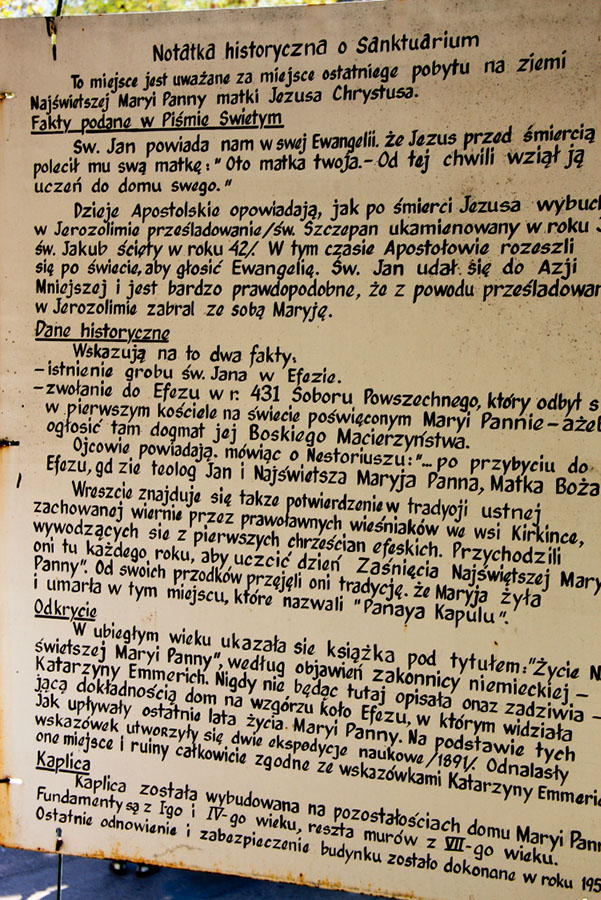 Notatka historyczna o Sanktuarium
To miejsce jest uważane za miejsce ostatniego pobytu na ziemi
Najświetszej Maryi Panny matki Jezusa Chrystusa.
Fakty podane w Piśmie Świetym
Św. Jan powiada nam w swej Ewangelii. że Jezus przed śmiercią
polecił mu swą matkę: "Oto matka twoja.- Od tej chwili wziął ją
uczeń do domu swego."
Dzieje Apostolskie opowiadają, jak po śmierci Jezusa wybuch
w Jerozolimie prześladowanie/św. Szczepan ukamienowany w roku
św. Jakub ścięty w roku 42/. W tym czasie Apostołowie rozeszli
się po świecie, aby głosić Ewangelię. Św. Jan udał się do Azji
Mniejszej i jest bardzo prawdopodobne, że z powodu prześladowań
w Jerozolimie zabral ze sobą Maryję.
Dane historyczne
Wskazują na to dwa fakty:
-istnienie grobu św. Jana w Efezie.
-zwołanie do Efezu w r. 431 Soboru Powszechnego, który odbył s
w pierwszym kościele na świecie poświęconym Maryi Pannie-ażeb
ogłosić tam dogmat jej Boskiego Macierzyństwa.
Ojcowie powiadają. mówiąc o Nestoriuszu: "... po przybyciu do
Efezu, gd zie teolog Jan i Najświetsza Maryja Panna, Matka Boża
Wreszcie znajduje się takze potwierdzenie w tradyoji ustnej
zachowanej wiernie przez prawoławnych wieśniaków we wsi Kirkince,
wywodzących sie z pierwszych chrześcian efeskich. Przychodzili
oni tu każdego roku, aby uczcić dzień Zaśnięcia Najświętszej Mary
Panny". Od swoich przodków przęjęli oni tradycję. że Maryja żyła
i umarła w tym miejscu, które nazwali "Panaya Kapulu".
Odkrycie
W ubiegłym wieku ukazała sie książka pod tytułem: "Życie N
świetszej Maryi Panny", według objawień zakonnicy niemieckiej -
Katarzyny Emmerich. Nigdy nie będąc tutaj opisała onaz zadziwia -
jącą dokładnością dom na wzgórzu koło Efezu, w którym widziała
Jak upływały ostatnie lata życia Maryi Panny. Na podstawie tych
wskazówek utworzyły się dwie ekspodycje naukowe/1891/. Odnalasły
one miejsce i ruiny całkowicie zgodne ze wskazówkami Katarzyny Emmeric
Kaplica
Kaplica została wybudowana na pozostałościach domu Maryi Pann
Fundamenty są z I-go i IV-go wieku, reszta murów z VII-go wieku.
Ostatnie odnowienie i zabezpieczenie budynku zostało dokonane w roku 195